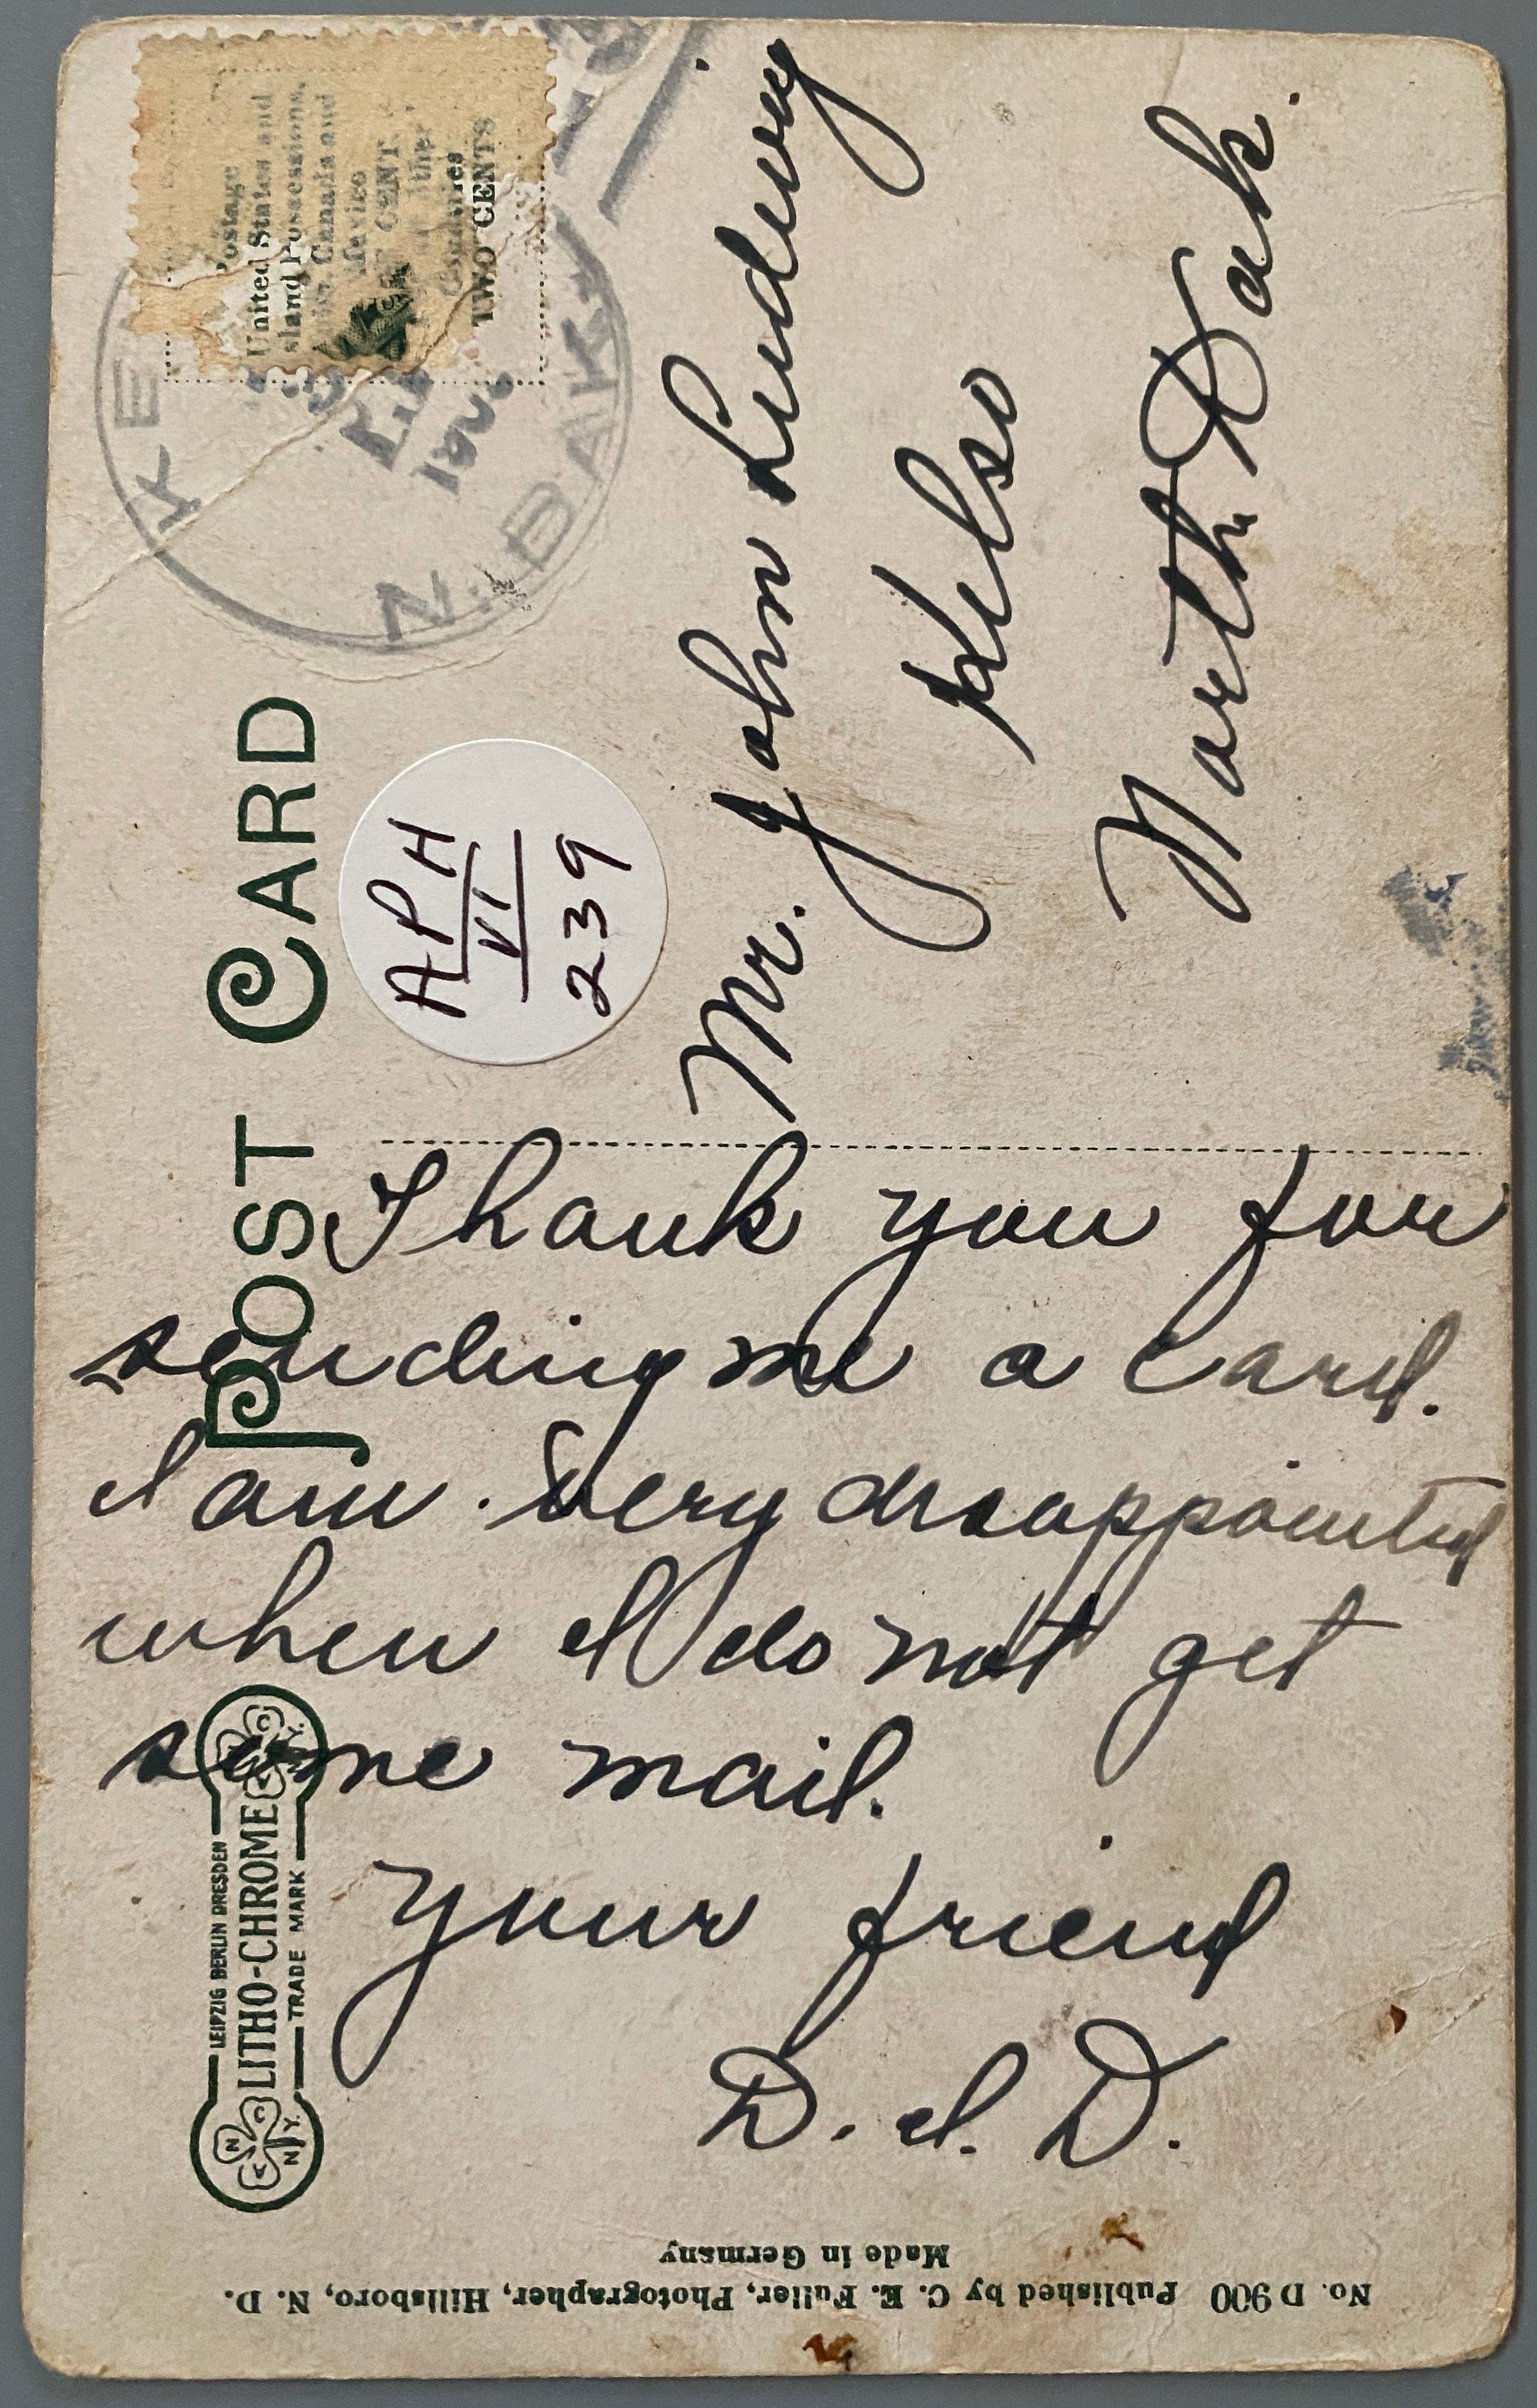 POST CARD
Postage
United States and
Island Possessions,
Canada and
Mexico
CENT
Countries
TWO CENTS
N. DAK.
APH
VI
239
Mr. John Ludwig
Kelso
North Dak.
Thank you for
sending me a Card.
I am. Very disappointed
when I do not get
some mail.
Your friend
D. I. D.
LEIPZIG BERLIN DRESDEN
LITHO-CHROME
TRADE MARK
No. D 900 Published by C. E. Fuller, Photographer, Hillsboro, N. D.
Made in Germany